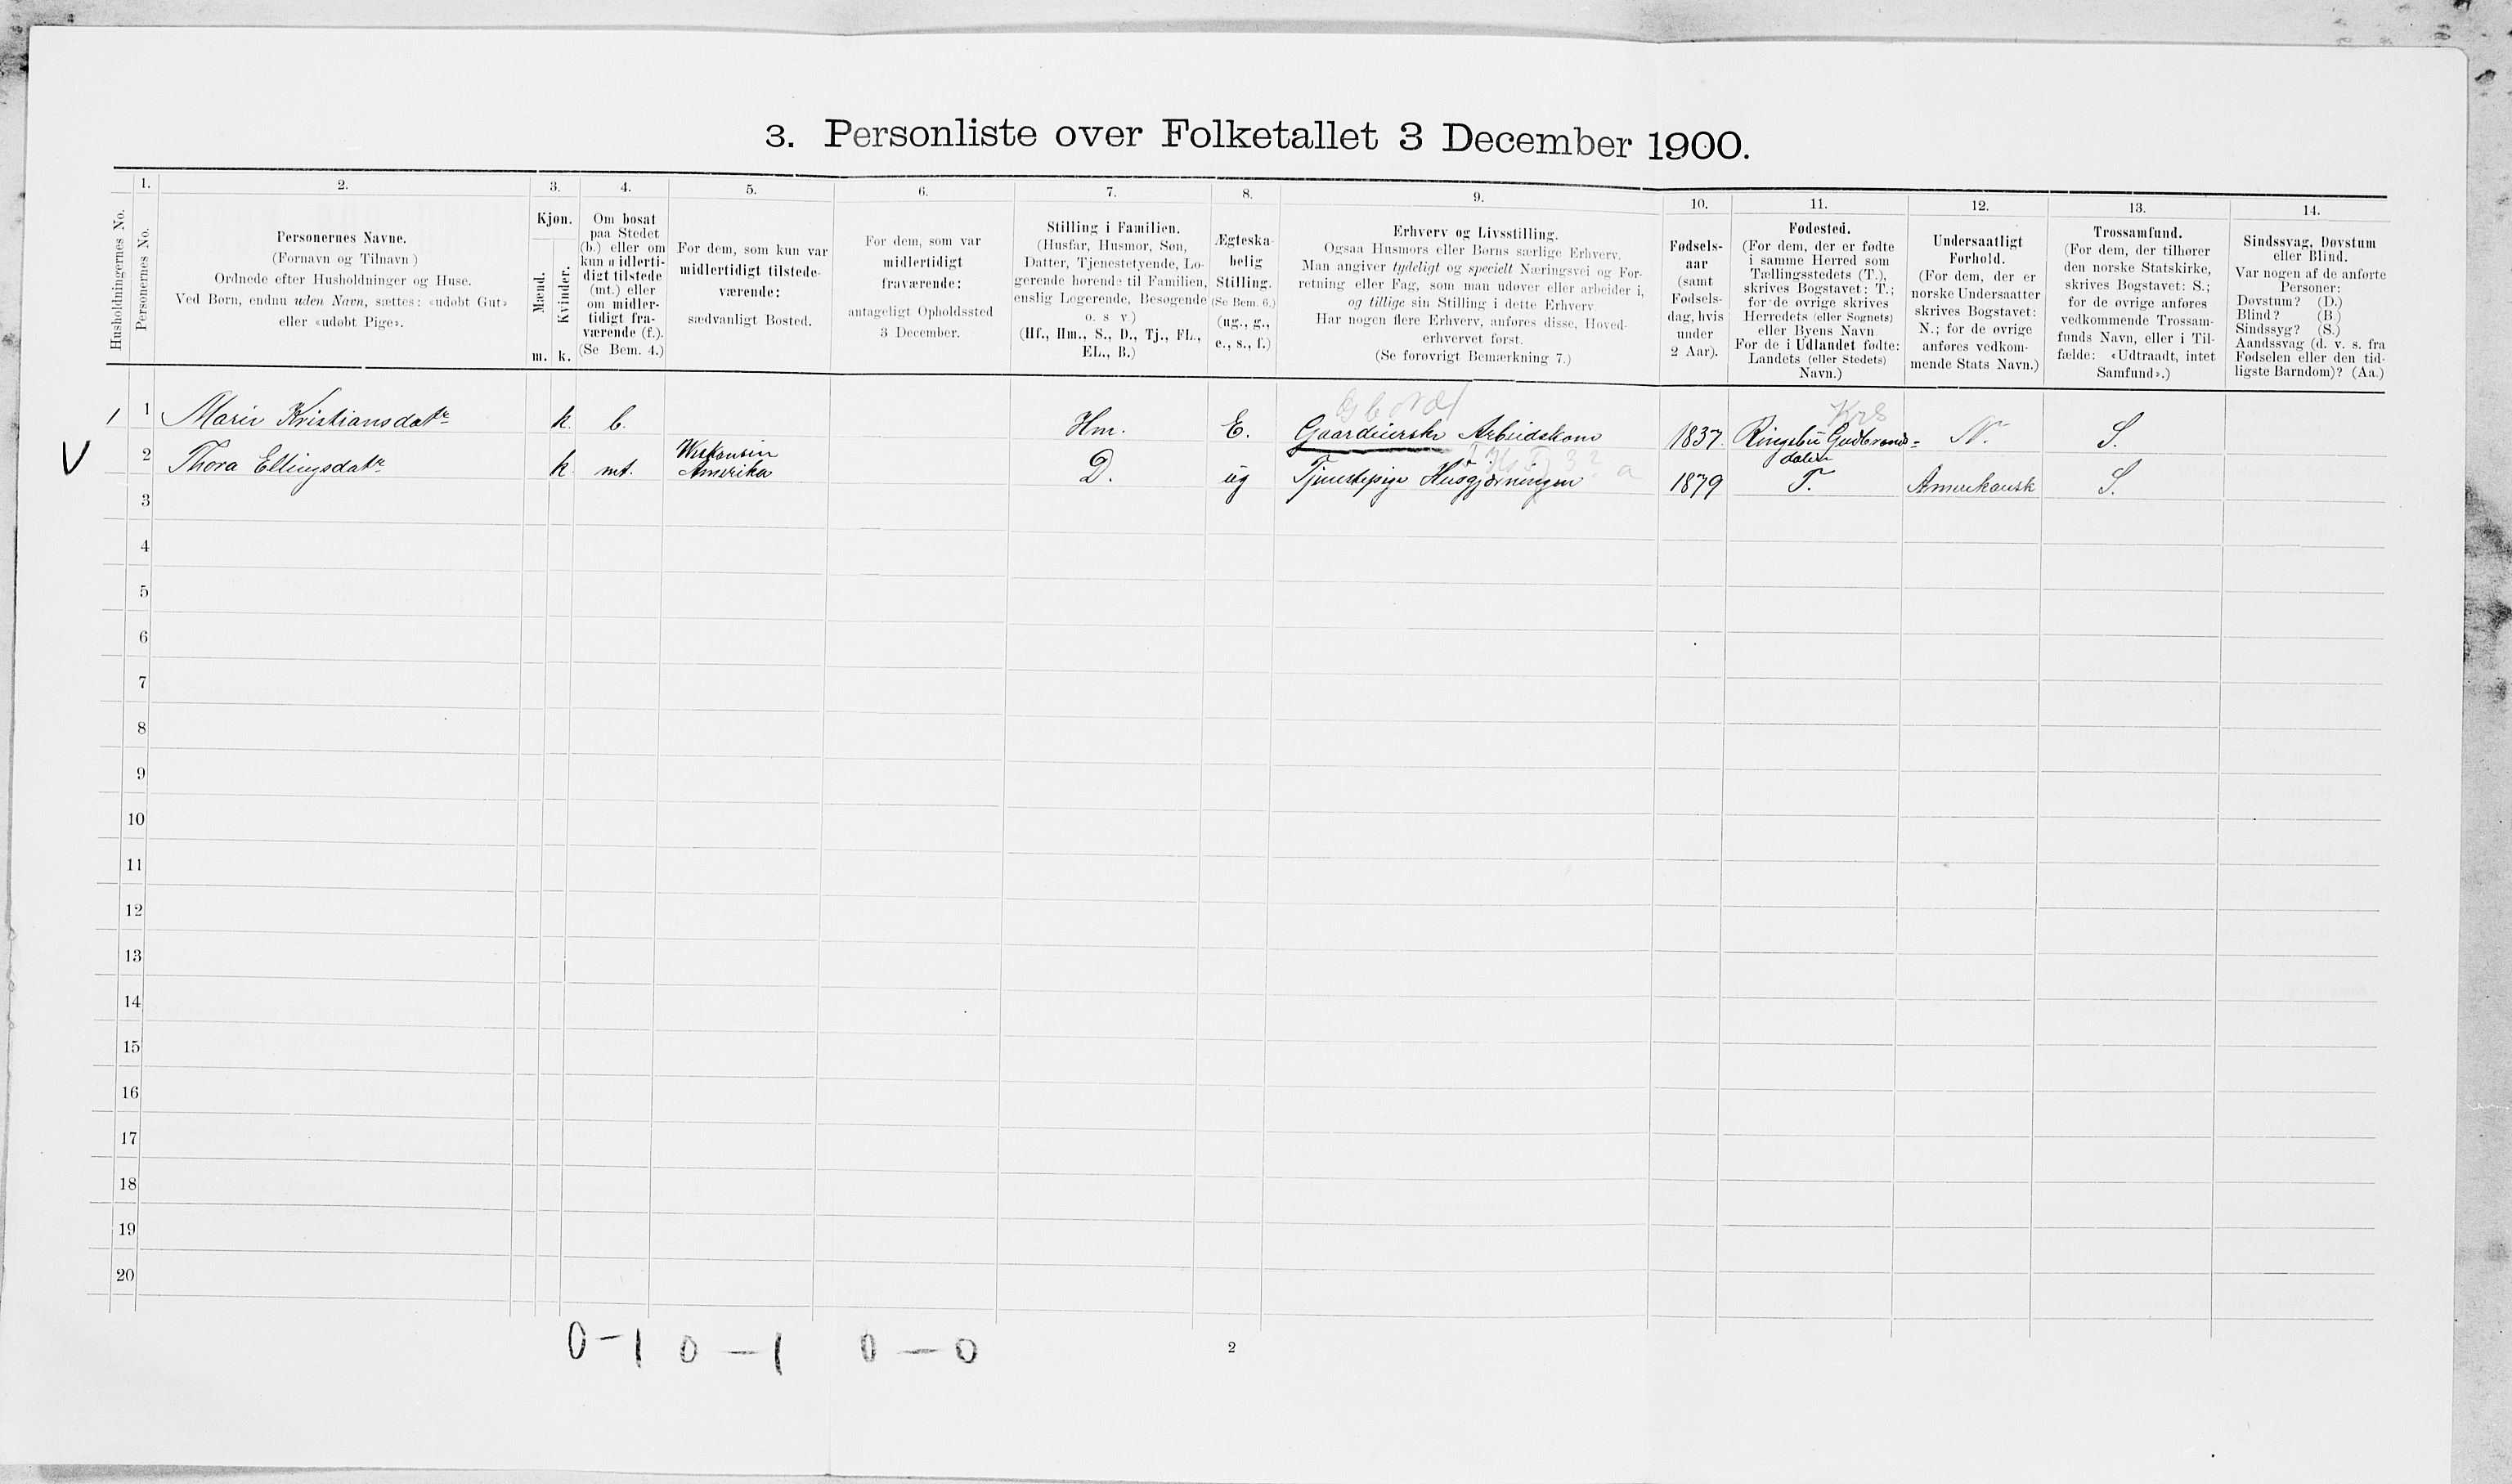 3. Personliste over Folketallet 3 December 1900.
1. 2. 3. 4. 5. 6. 7. 8. 9. 10. 11. 12. 13. 14.
Husholdningernes No.
Personernes No.
Personernes Navne.
(Fornavn og Tilnavn)
Ordnede efter Husholdninger og Huse.
Ved Børn, endnu uden Navn, sættes: «udøbt Gut»
eller «udøbt Pige».
Kjøn.
Mænd.
Kvinder.
m. k.
Om bosat
paa Stedet
(b.) eller om
kun midlerti-
digt tilstede
(mt.) eller
om midler-
tidigt fra-
værende (f.).
(Se Bem. 4.)
For dem, som kun var
midlertidigt tilstede-
værende:
sædvanligt Bosted.
For dem, som var
midlertidigt
fraværende:
antageligt Opholdssted
3 December.
Stilling i Familien.
(Husfar, Husmor, Søn,
Datter, Tjenestetyende, Lo-
gerende hørende til Familien,
enslig Logerende, Besøgende
o. s v.)
(Hf., Hm., S., D., Tj., FL.,
EL., B.)
Ægteska-
belig
Stilling.
(Se Bem. 6.)
(ug., g.,
e., s., f.)
Erhverv og Livsstilling.
Ogsaa Husmors eller Børns særlige Erhverv.
Man angiver tydeligt og specielt Næringsvei og For-
retning eller Fag, som man udøver eller arbeider i,
og tillige sin Stilling i dette Erhverv.
Har nogen flere Erhverv, anføres disse, Hoved-
erhvervet først.
(Se forøvrigt Bemærkning 7.)
Fødsels-
aar
(samt
Fødsels-
dag, hvis
under
2 Aar).
Fødested.
(For dem, der er fødte
i samme Herred som
Tællingsstedets (T.),
skrives Bogstavet: T.;
for de øvrige skrives
Herredets (eller Sognets)
eller Byens Navn
For de i Udlandet fødte:
Landets (eller Stedets)
Navn.)
Undersaatligt
Forhold.
(For dem, der er
norske Undersaatter
skrives Bogstavet:
N.; for de øvrige
anføres vedkom-
mende Stats Navn.)
Trossamfund.
(For dem, der tilhører
den norske Statskirke,
skrives Bogstavet: S.;
for de øvrige anføres
vedkommende Trossam-
funds Navn, eller i Til-
fælde: «Udtraadt, intet
Samfund».)
Sindssvag, Døvstum
eller Blind.
Var nogen af de anførte
Personer:
Døvstum? (D.)
Blind? (B.)
Sindssyg? (S.)
Aandssvag (d. v. s. fra
Fødselen eller den tid-
ligste Barndom)? (Aa.)
Krs
1 1 Marie Kristiansdatr k. b. Hm. E. Gaardeierske Arbeidskone 1837. Ringebu Gudbrands= N. S.
dalen
Wiskonsin
V 2 Thora Ellingsdatr k mt. Amerika D. ug Tjenestepige Husgjerningen 1879 T. Amerikansk S.
3
4
5
6
7
8
9
10
11
12
13
14
15
16
17
18
19
20
0-1 0-1 0-0
2